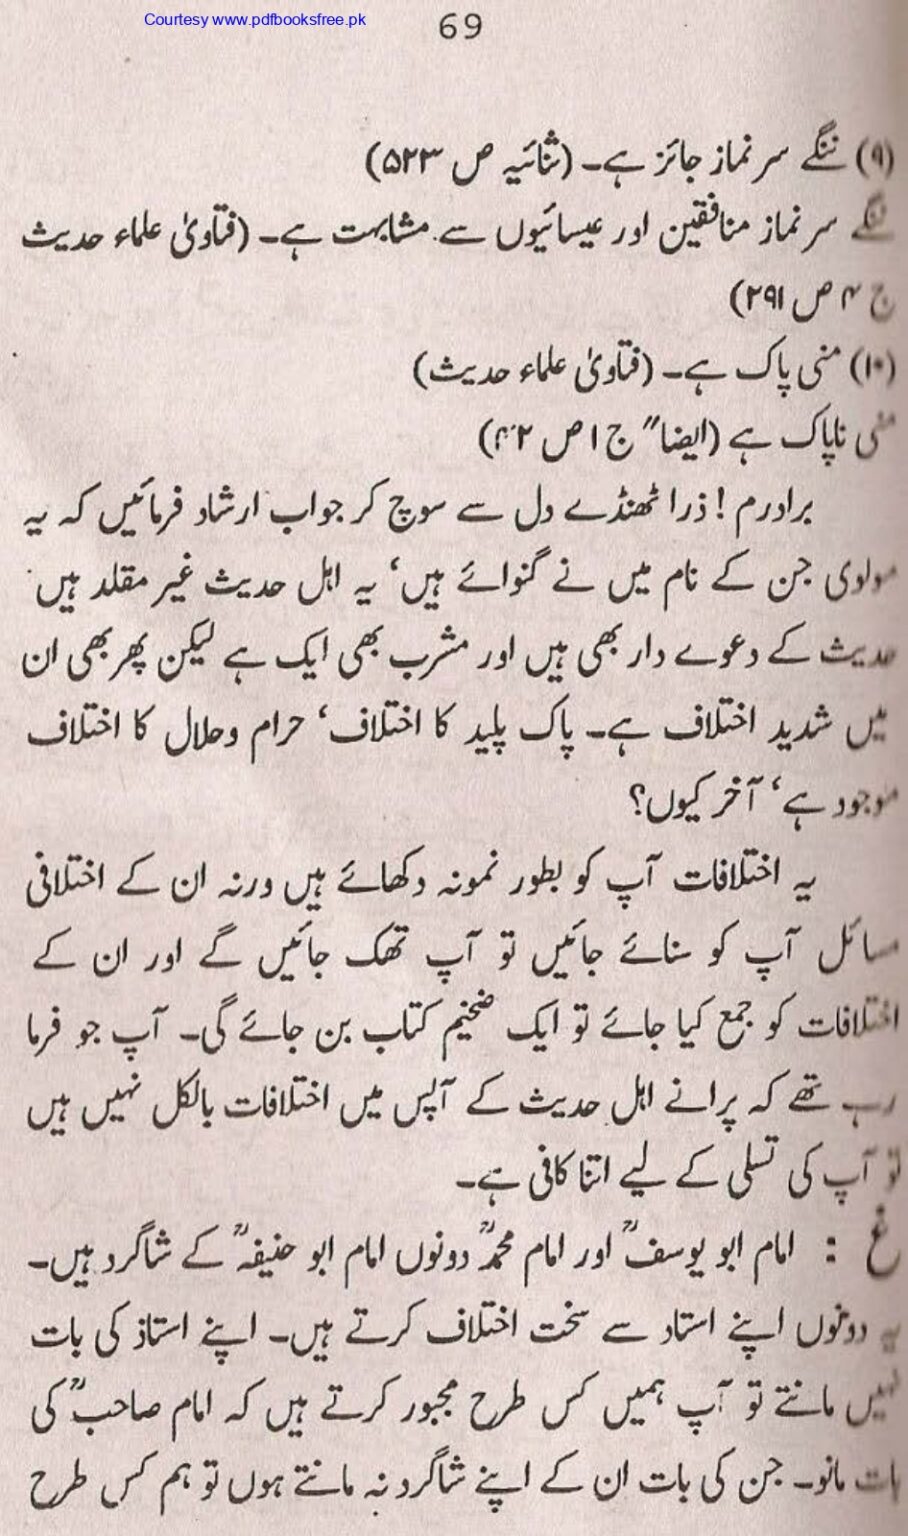 Courtesy www.pdfbooksfree.pk
69
(۹) ننگے سر نماز جائز ہے۔ (ثنائیہ ص ۵۲۳)
ننگے سر نماز منافقین اور عیسائیوں سے مشابہت ہے۔ (فتاویٰ علماء حدیث
ج ۴ ص ۲۹۱)
(۱۰) منی پاک ہے۔ (فتاویٰ علماء حدیث)
منی ناپاک ہے (ایضا" ج ۱ ص ۴۲)
برادرم ! ذرا ٹھنڈے دل سے سوچ کر جواب ارشاد فرمائیں کہ یہ
مولوی جن کے نام میں نے گنوائے ہیں‘ یہ اہل حدیث غیر مقلد ہیں
حدیث کے دعوے دار بھی ہیں اور مشرب بھی ایک ہے لیکن پھر بھی ان
میں شدید اختلاف ہے۔ پاک پلید کا اختلاف‘ حرام وحلال کا اختلاف
موجود ہے‘ آخر کیوں؟
یہ اختلافات آپ کو بطور نمونہ دکھائے ہیں ورنہ ان کے اختلافی
مسائل آپ کو سنائے جائیں تو آپ تھک جائیں گے اور ان کے
اختلافات کو جمع کیا جائے تو ایک ضخیم کتاب بن جائے گی۔ آپ جو فرما
رہے تھے کہ پرانے اہل حدیث کے آپس میں اختلافات بالکل نہیں ہیں
تو آپ کی تسلی کے لیے اتنا کافی ہے۔
غ : امام ابو یوسفؒ اور امام محمدؒ دونوں امام ابو حنیفہؒ کے شاگرد ہیں۔
یہ دونوں اپنے استاد سے سخت اختلاف کرتے ہیں۔ اپنے استاذ کی بات
نہیں مانتے تو آپ ہمیں کس طرح مجبور کرتے ہیں کہ امام صاحبؒ کی
بات مانو۔ جن کی بات ان کے اپنے شاگرد نہ مانتے ہوں تو ہم کس طرح